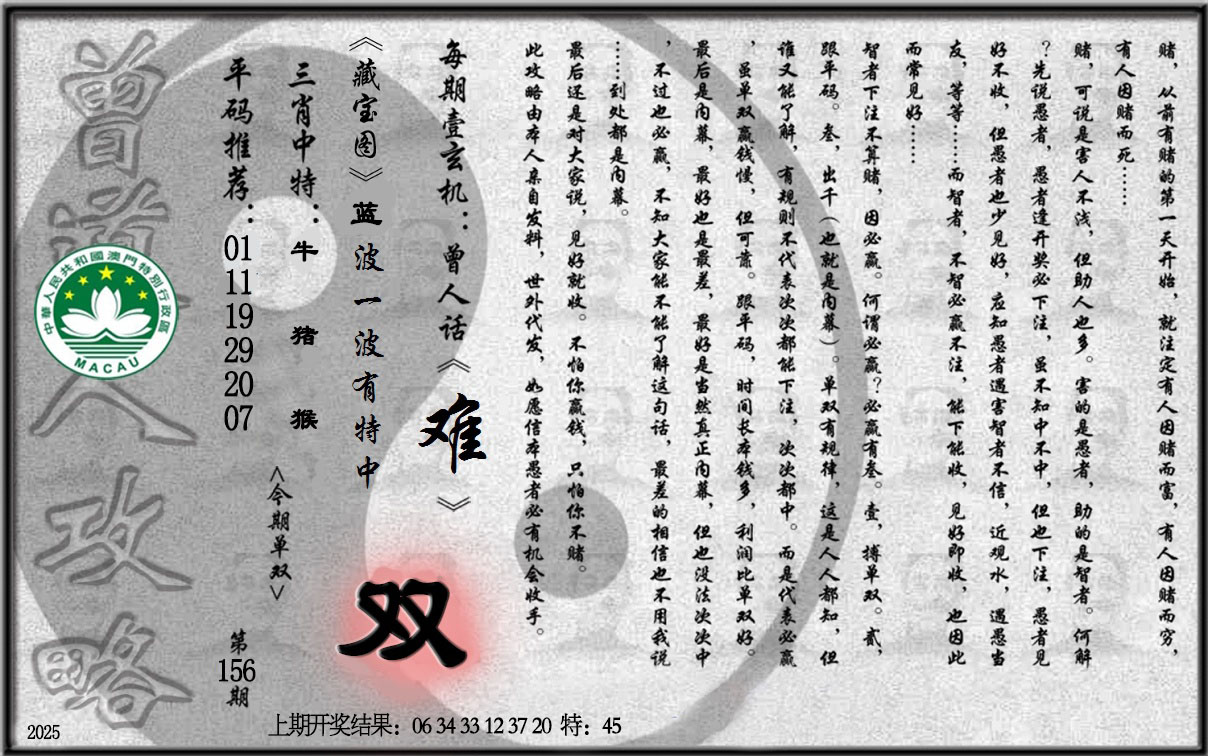 赌，从前有赌的第一天开始，就注定有人因赌而富，有人因赌而穷，
有人因赌而死……
赌，可说是害人不浅，但助人也多。害的是愚者，助的是智者。何解
？先说愚者，愚者逢开奖必下注，虽不知中不中，但也下注，愚者见
好不收，但愚者也少见好，应知愚者遇害智者不信，近观水，遇愚当
友，等等……而智者，不智必赢不注，能下能收，见好即收，也因此
而常见好……
智者下注不算赌，因必赢。何谓必赢？必赢有叁。壹，搏单双。贰，
跟平码。叁，出千（也就是内幕）。单双有规律，这是人人都知，但
谁又能了解，有规则不代表次次都能下注，次次都中。而是代表必赢
，虽单双赢钱慢，但可靠。跟平码，时间长本钱多，利润比单双好。
最后是内幕，最好也是最差，最好是当然真正内幕，但也没法次次中
，不过也必赢，不知大家能不能了解这句话，最差的相信也不用我说
……到处都是内幕。
最后还是对大家说，见好就收。不怕你赢钱，只怕你不赌。
此攻略由本人亲自发料，世外代发，如愿信本愚者必有机会收手。
每期壹玄机：曾人话《难》
《藏宝图》蓝波一波有特中
双
三肖中特：牛 猪 猴
<今期单双>
平码推荐：01 11 19 29 20 07
第156期
曾道人攻略
中華人民共和國澳門特別行政區
MACAU
2025
上期开奖结果：06 34 33 12 37 20 特：45